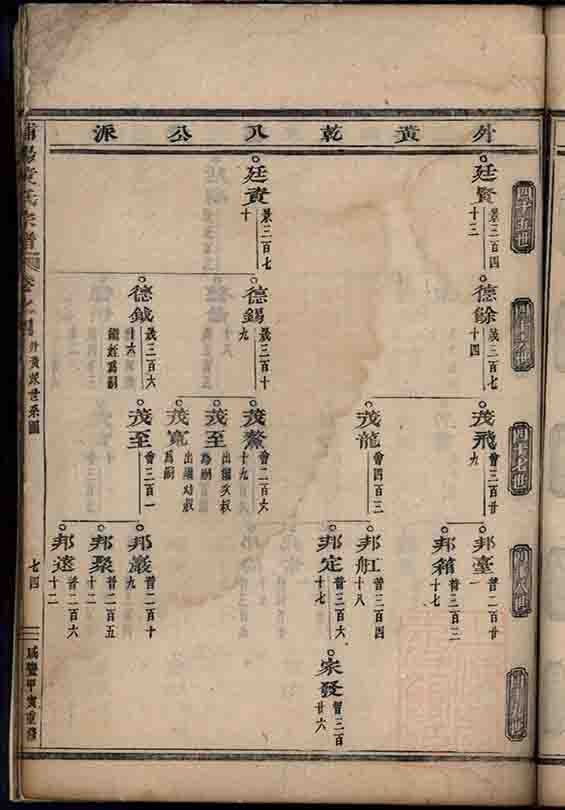 外黃乾八公派
四十五世
四十六世
四十七世
廷賢
景三百四
十三
德餘
歲三百七
十四
茂飛
會三百廿
九
邦臺
普二百廿
一
邦籍
普三百三
十七
茂龍
會四百三
邦舡
普三百四
十八
邦定
普三百六
十七
宗發
智三百
廿六
廷資
景三百七
十
德錫
歲三百十
九
茂鰲
會二百六
十九
茂至
出繼
為嗣
茂寬
出繼
為嗣
德鉞
歲三百六
十六
為嗣
茂至
會三百一
邦嚴
普二百十
九
邦聚
普二百五
十二
邦遠
普二百六
十二
宗譜
外黃派世系圖
七四
咸豐甲寅重修